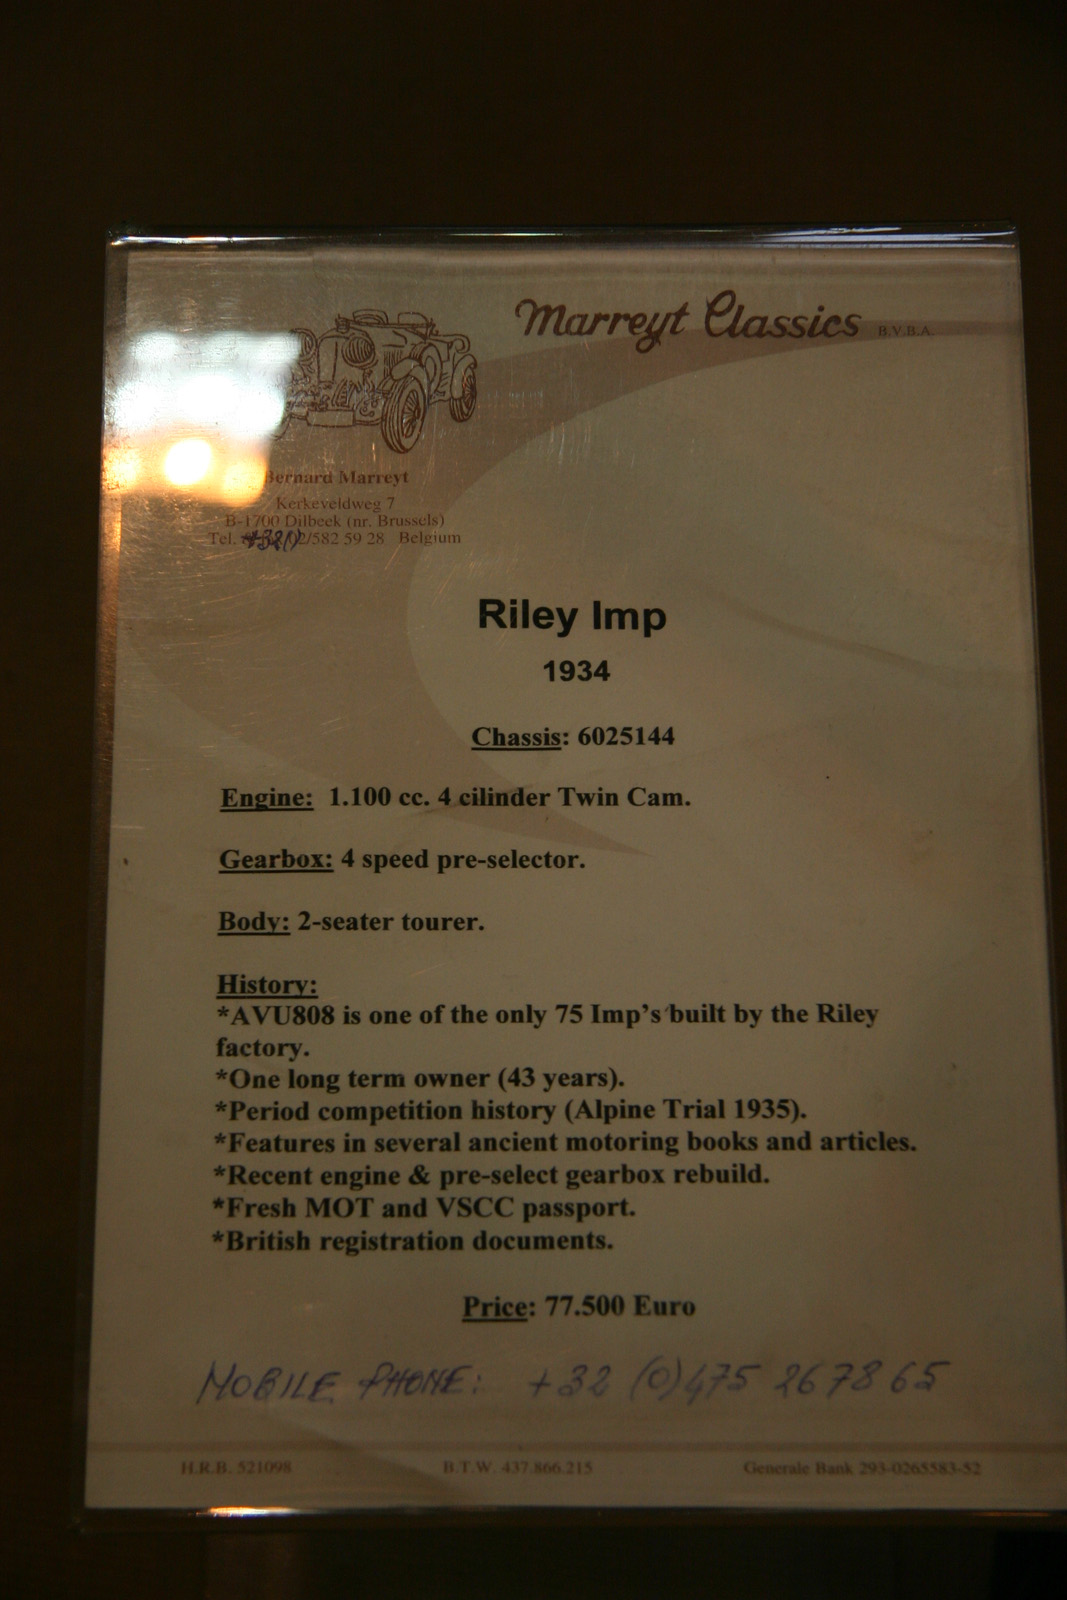 Marreyt Classics B.V.B.A.
Bernard Marreyt
Kerkeveldweg 7
B-1700 Dilbeek (nr. Brussels)
Tel. +32() 02/582 59 28 Belgium
Riley Imp
1934
Chassis: 6025144
Engine: 1.100 cc. 4 cilinder Twin Cam.
Gearbox: 4 speed pre-selector.
Body: 2-seater tourer.
History:
*AVU808 is one of the only 75 Imp's built by the Riley
factory.
*One long term owner (43 years).
*Period competition history (Alpine Trial 1935).
*Features in several ancient motoring books and articles.
*Recent engine & pre-select gearbox rebuild.
*Fresh MOT and VSCC passport.
*British registration documents.
Price: 77.500 Euro
MOBILE PHONE: +32 (0)475 267865
H.R.B. 521098 B.T.W. 437.866.215 Generale Bank 293-0265583-52